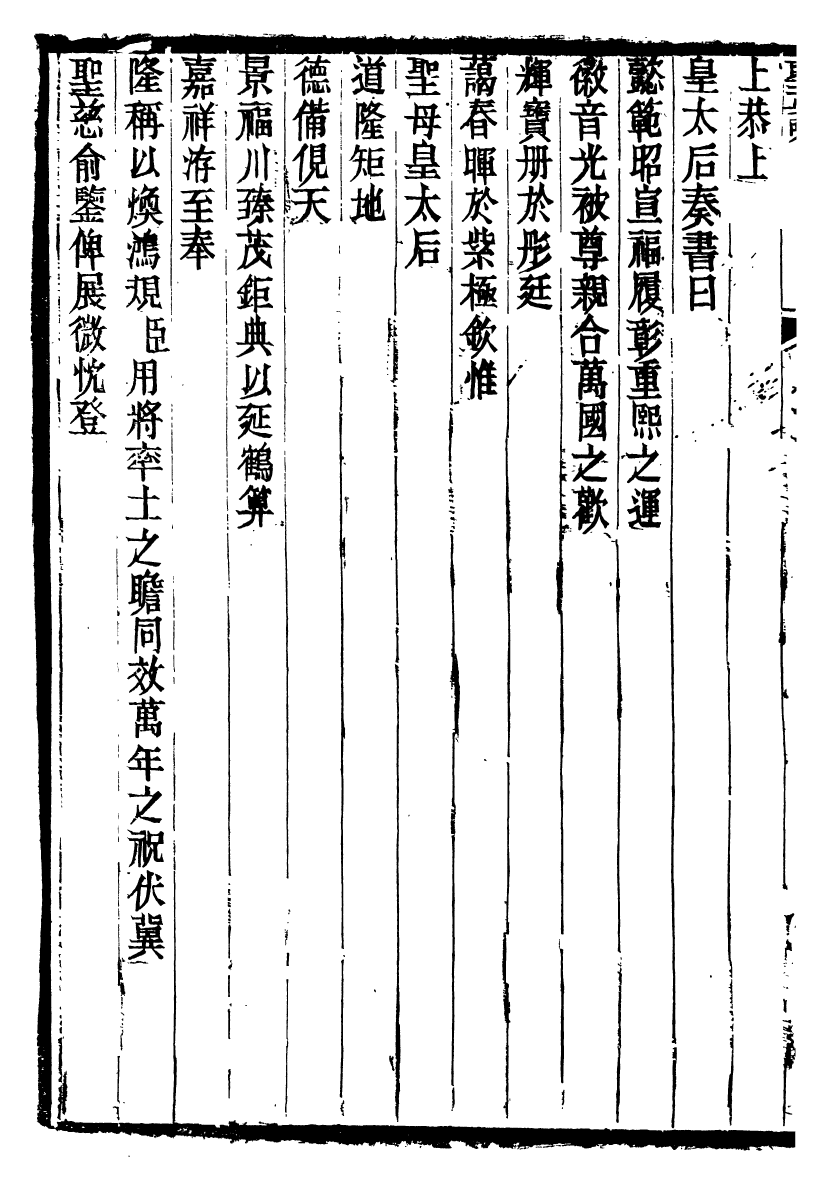 上恭上
皇太后奏書曰
懿範昭宣福履彰重熙之運
徽音光被尊親合萬國之歡
輝寶册於彤廷
藹春暉於紫極欽惟
聖母皇太后
道隆矩地
德備俔天
景福川臻茂鉅典以延鶴算
嘉祥洊至奉
隆稱以煥鴻規臣用將率土之瞻同效萬年之祝伏冀
聖慈俞鑒俾展微忱登